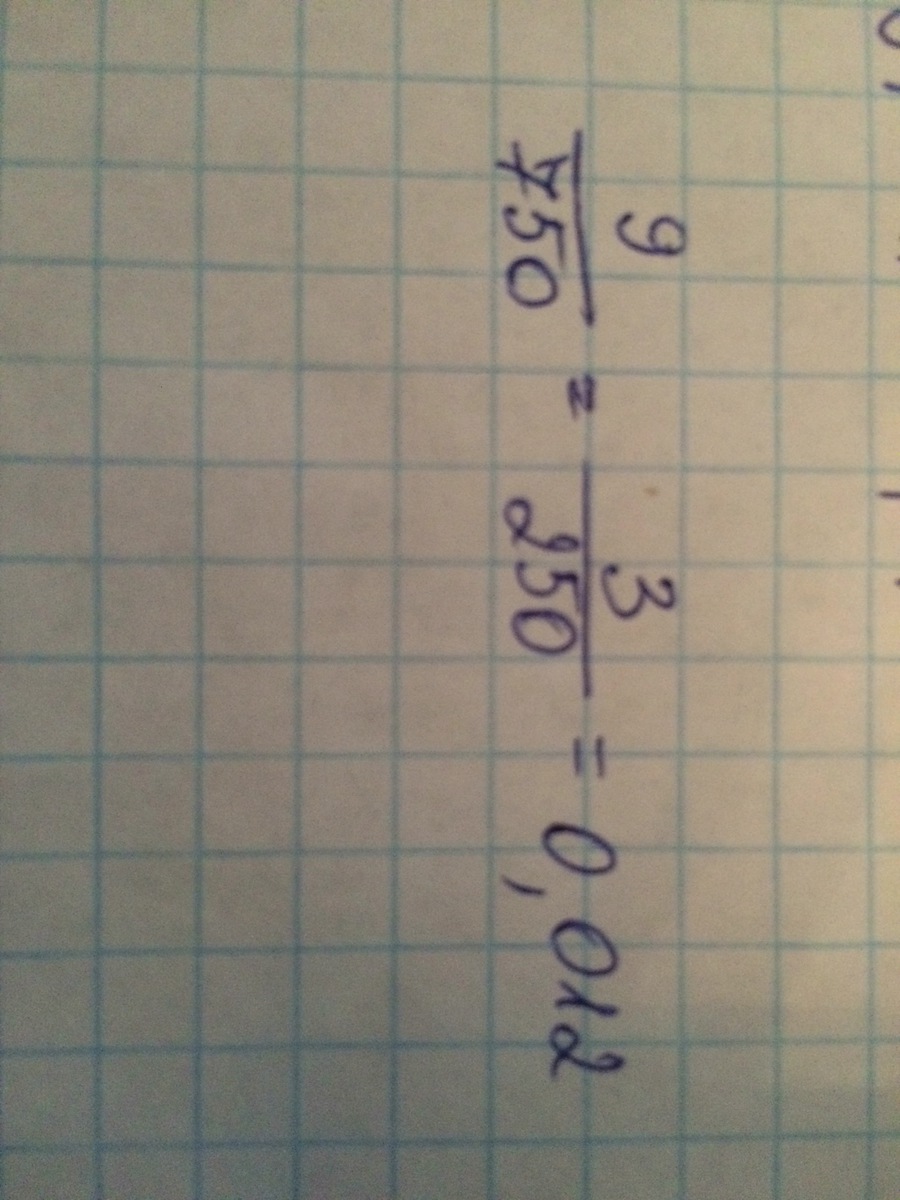 9/750 = 3/250 = 0,012